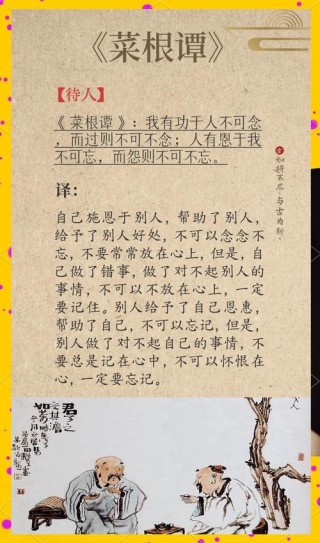 《菜根谭》
【待人】
《菜根谭》：我有功于人不可念
，而过则不可不念；人有恩于我
不可忘，而怨则不可不忘。
如将不尽·与古为新·
译：
自己施恩于别人，帮助了别人，
给予了别人好处，不可以念念不
忘，不要常常放在心上，但是，自
己做了错事，做了对不起别人的
事情，不可以不放在心上，一定
要记住。别人给予了自己恩惠，
帮助了自己，不可以忘记，但是，
别人做了对不起自己的事情，不
要总是记在心中，不可以怀恨在
心，一定要忘记。
君子之
交其淡
如